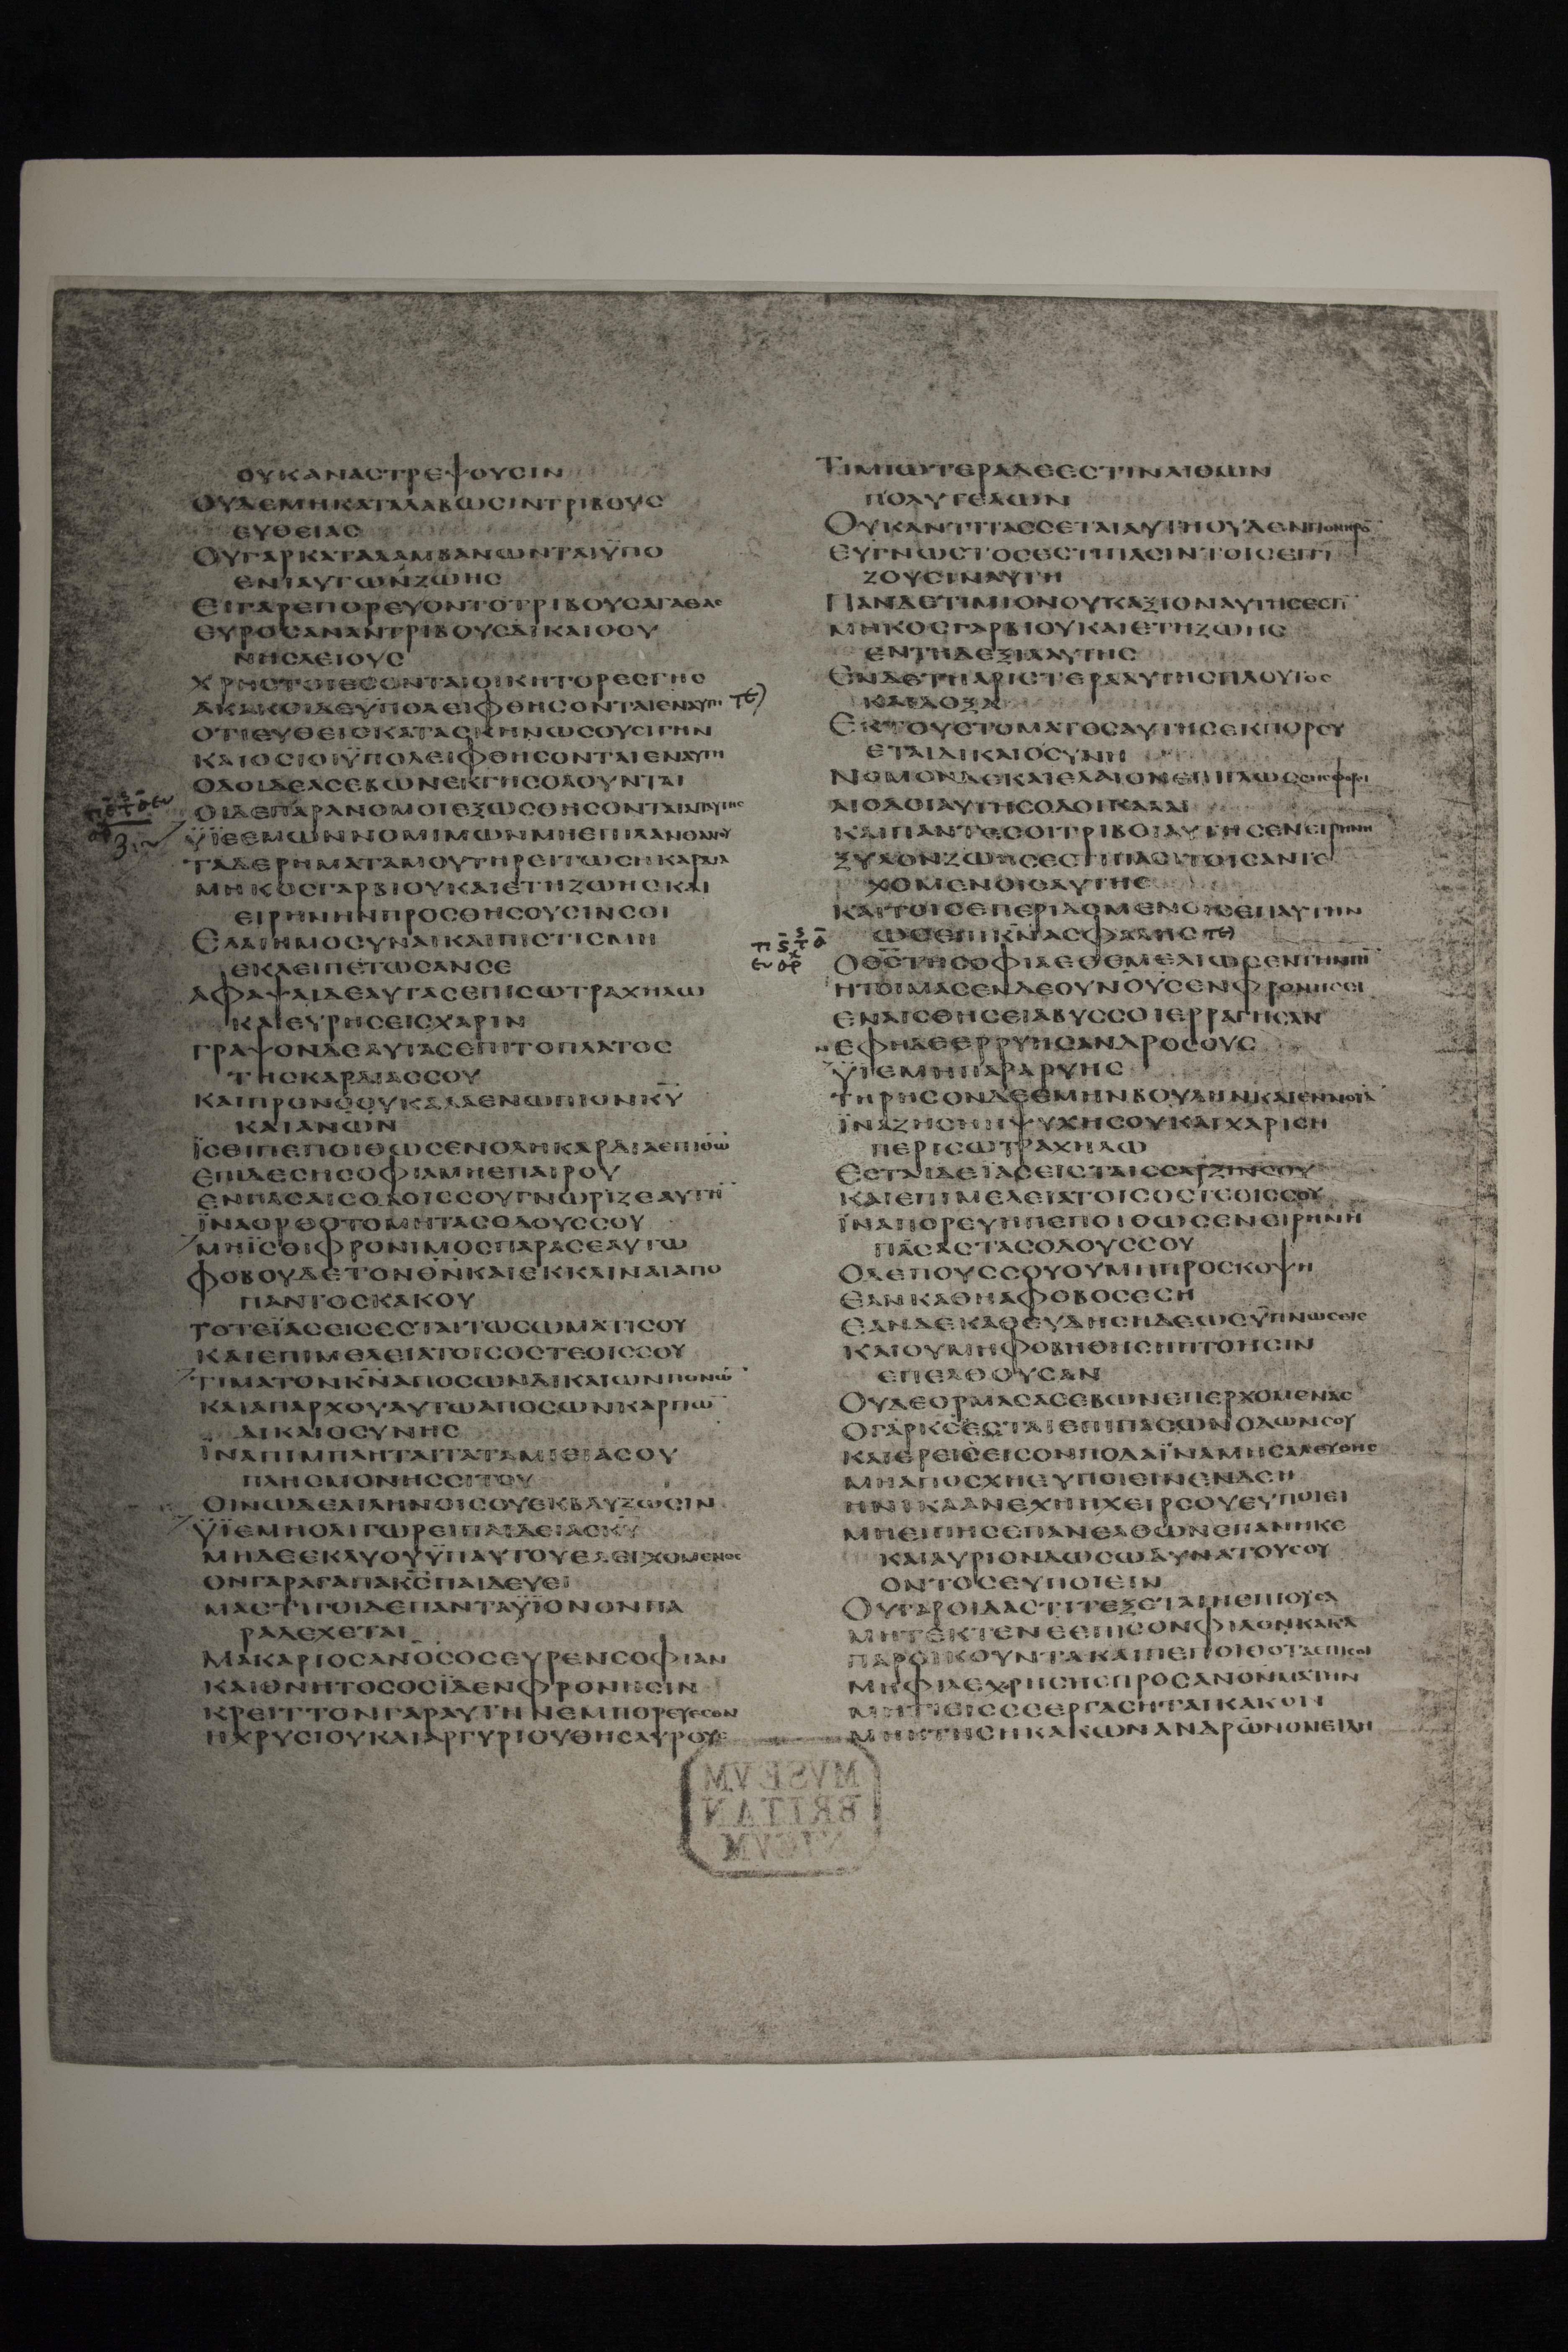 ΟΥΚΑΝΑCΤΡΕΨΟΥCΙΝ
ΟΥΔΕΜΗΚΑΤΑΛΑΒΩCΙΝΤΡΙΒΟΥC
ΕΥΘΕΙΑC
ΟΥΓΑΡΚΑΤΑΛΑΜΒΑΝΩΝΤΑΙΫΠΟ
ΕΝΙΑΥΤΩΝΖΩΗC
ΕΙΓΑΡΕΠΟΡΕΥΟΝΤΟΤΡΙΒΟΥCΑΓΑΘΑC
ΕΥΡΟCΑΝΑΝΤΡΙΒΟΥCΔΙΚΑΙΟCΥ
ΝΗCΛΕΙΟΥC
ΧΡΗCΤΟΙΕCΟΝΤΑΙΟΙΚΗΤΟΡΕCΓΗC
ΑΚΑΚΟΙΔΕΥΠΟΛΕΙΦΘΗCΟΝΤΑΙΕΝΑΥΤΗ
ΟΤΙΕΥΘΕΙCΚΑΤΑCΚΗΝΩCΟΥCΙΓΗΝ
ΚΑΙΟCΙΟΙΫΠΟΛΕΙΦΘΗCΟΝΤΑΙΕΝΑΥΤΗ
ΟΔΟΙΔΕΑCΕΒΩΝΕΚΓΗCΟΛΟΥΝΤΑΙ
ΟΙΔΕΠΑΡΑΝΟΜΟΙΕΞΩCΘΗCΟΝΤΑΙΑΠΑΥΤΗC
ΫΪΕΕΜΩΝΝΟΜΙΜΩΝΜΗΕΠΙΛΑΝΘΑΝΟΥ
ΤΑΔΕΡΗΜΑΤΑΜΟΥΤΗΡΕΙΤΩCΗΚΑΡΔΙΑ
ΜΗΚΟCΓΑΡΒΙΟΥΚΑΙΕΤΗΖΩΗCΚΑΙ
ΕΙΡΗΝΗΝΠΡΟCΘΗCΟΥCΙΝCΟΙ
ΕΛΕΗΜΟCΥΝΑΙΚΑΙΠΙCΤΙCΜΗ
ΕΚΛΕΙΠΕΤΩCΑΝCΕ
ΑΦΑΨΑΙΔΕΑΥΤΑCΕΠΙCΩΤΡΑΧΗΛΩ
ΚΑΙΕΥΡΗCΕΙCΧΑΡΙΝ
ΓΡΑΨΟΝΔΕΑΥΤΑCΕΠΙΤΟΠΛΑΤΟC
ΤΗCΚΑΡΔΙΑCCΟΥ
ΚΑΙΠΡΟΝΟΟΥΚΑΛΑΕΝΩΠΙΟΝΚΥ
ΚΑΙΑΝΩΝ
ΪCΘΙΠΕΠΟΙΘΩCΕΝΟΛΗΚΑΡΔΙΑΕΠΙΘΩ
ΕΠΙΔΕCΗCΟΦΙΑΜΗΕΠΑΙΡΟΥ
ΕΝΠΑCΑΙCΟΔΟΙCCΟΥΓΝΩΡΙΖΕΑΥΤΗ
ΪΝΑΟΡΘΟΤΟΜΗΤΑCΟΔΟΥCCΟΥ
ΜΗΪCΘΙΦΡΟΝΙΜΟCΠΑΡΑCΕΑΥΤΩ
ΦΟΒΟΥΔΕΤΟΝΘΝΚΑΙΕΚΚΛΙΝΑΙΑΠΟ
ΠΑΝΤΟCΚΑΚΟΥ
ΤΟΤΕΪΑCΕΙCΕCΤΑΙΤΩCΩΜΑΤΙCΟΥ
ΚΑΙΕΠΙΜΕΛΕΙΑΤΟΙCΟCΤΕΟΙCCΟΥ
ΤΙΜΑΤΟΝΚΝΑΠΟCΩΝΔΙΚΑΙΩΝΠΟΝΩ
ΚΑΙΑΠΑΡΧΟΥΑΥΤΩΑΠΟCΩΝΚΑΡΠΩ
ΔΙΚΑΙΟCΥΝΗC
ΪΝΑΠΙΜΠΛΗΤΑΙΤΑΤΑΜΙΕΙΑCΟΥ
ΠΛΗCΜΟΝΗCCΙΤΟΥ
ΟΙΝΩΔΕΑΙΛΗΝΟΙCΟΥΕΚΒΛΥΖΩCΙΝ
ΫΪΕΜΗΟΛΙΓΩΡΕΙΠΑΙΔΕΙΑCΚΥ
ΜΗΔΕΕΚΛΥΟΥΫΠΑΥΤΟΥΕΛΕΓΧΟΜΕΝΟC
ΟΝΓΑΡΑΓΑΠΑΚCΠΑΙΔΕΥΕΙ
ΜΑCΤΙΓΟΙΔΕΠΑΝΤΑΫΪΟΝΟΝΠΑ
ΡΑΔΕΧΕΤΑΙ
ΜΑΚΑΡΙΟCΑΝΟCΟCΕΥΡΕΝCΟΦΙΑΝ
ΚΑΙΘΝΗΤΟCΟCΪΔΕΝΦΡΟΝΗCΙΝ
ΚΡΕΙΤΤΟΝΓΑΡΑΥΤΗΝΕΜΠΟΡΕΥΕCΘΑΙ
ΗΧΡΥCΙΟΥΚΑΙΑΡΓΥΡΙΟΥΘΗCΑΥΡΟΥC
ΤΙΜΙΩΤΕΡΑΔΕΕCΤΙΝΛΙΘΩΝ
ΠΟΛΥΤΕΛΩΝ
ΟΥΚΑΝΤΙΤΑCCΕΤΑΙΑΥΤΗΟΥΔΕΝΠΟΝΗΡΟ
ΕΥΓΝΩCΤΟCΕCΤΙΠΑCΙΝΤΟΙCΕΓΓΙ
ΖΟΥCΙΝΑΥΤΗ
ΠΑΝΔΕΤΙΜΙΟΝΟΥΚΑΞΙΟΝΑΥΤΗCΕCΤΙ
ΜΗΚΟCΓΑΡΒΙΟΥΚΑΙΕΤΗΖΩΗC
ΕΝΤΗΔΕΞΙΑΑΥΤΗC
ΕΝΔΕΤΗΑΡΙCΤΕΡΑΑΥΤΗCΠΛΟΥΤΟC
ΚΑΙΔΟΞΑ
ΕΚΤΟΥCΤΟΜΑΤΟCΑΥΤΗCΕΚΠΟΡΕΥ
ΕΤΑΙΔΙΚΑΙΟCΥΝΗ
ΝΟΜΟΝΔΕΚΑΙΕΛΑΙΟΝΕΠΙΓΛΩCCΗCΦΟΡΕΙ
ΑΙΟΔΟΙΑΥΤΗCΟΔΟΙΚΑΛΑΙ
ΚΑΙΠΑΝΤΕCΟΙΤΡΙΒΟΙΑΥΤΗCΕΝΕΙΡΗΝΗ
ΞΥΛΟΝΖΩΗCΕCΤΙΠΑCΙΤΟΙCΑΝΤΕ
ΧΟΜΕΝΟΙCΑΥΤΗC
ΚΑΙΤΟΙCΕΠΕΡΙΔΟΜΕΝΟΙCΕΠΑΥΤΗΝ
ΩCΕΠΙΚΝΑCΦΑΛΗC
ΟΘCΤΗCΟΦΙΑΕΘΕΜΕΛΙΩCΕΝΤΗΝΓΗ
ΗΤΟΙΜΑCΕΝΔΕΟΥΝΟΥCΕΝΦΡΟΝΗCΕΙ
ΕΝΑΙCΘΗCΕΙΑΒΥCCΟΙΕΡΡΑΓΗCΑΝ
ΕΦΗΔΕΕΡΡΥΗCΑΝΔΡΟCΟΥC
ΫΪΕΜΗΠΑΡΑΡΥΗC
ΤΗΡΗCΟΝΔΕΕΜΗΝΒΟΥΛΗΝΚΑΙΕΝΝΟΙΑ
ΪΝΑΖΗCΗΗΨΥΧΗCΟΥΚΑΙΧΑΡΙCΗ
ΠΕΡΙCΩΤΡΑΧΗΛΩ
ΕCΤΑΙΔΕΪΑCΕΙCΤΑΙCCΑΡΞΙΝCΟΥ
ΚΑΙΕΠΙΜΕΛΕΙΑΤΟΙCΟCΤΕΟΙCCΟΥ
ΪΝΑΠΟΡΕΥΗΠΕΠΟΙΘΩCΕΝΕΙΡΗΝΗ
ΠΑCΑCΤΑCΟΔΟΥCCΟΥ
ΟΔΕΠΟΥCCΟΥΟΥΜΗΠΡΟCΚΟΨΗ
ΕΑΝΚΑΘΗΑΦΟΒΟCΕCΗ
ΕΑΝΔΕΚΑΘΕΥΔΗCΗΔΕΩCΫΠΝΩCΕΙC
ΚΑΙΟΥΜΗΦΟΒΗΘΗCΗΠΤΟΗCΙΝ
ΕΠΕΛΘΟΥCΑΝ
ΟΥΔΕΟΡΜΑCΑCΕΒΩΝΕΠΕΡΧΟΜΕΝΑC
ΟΓΑΡΚCΕCΤΑΙΕΠΙΠΑCΩΝΟΔΩΝCΟΥ
ΚΑΙΕΡΕΙCΕΙCΟΝΠΟΔΑΪΝΑΜΗCΑΛΕΥΘΗC
ΜΗΑΠΟCΧΗΕΥΠΟΙΕΙΝΕΝΔΕΗ
ΗΝΙΚΑΑΝΕΧΗΗΧΕΙΡCΟΥΕΥΠΟΙΕΙ
ΜΗΕΙΠΗCΕΠΑΝΕΛΘΩΝΕΠΑΝΗΚΕ
ΚΑΙΑΥΡΙΟΝΔΩCΩΔΥΝΑΤΟΥCΟΥ
ΟΝΤΟCΕΥΠΟΙΕΙΝ
ΟΥΓΑΡΟΙΔΑCΤΙΤΕΞΕΤΑΙΗΕΠΙΟΥCΑ
ΜΗΤΕΚΤΕΝΕΕΠΙCΟΝΦΙΛΟΝΚΑΚΑ
ΠΑΡΟΙΚΟΥΝΤΑΚΑΙΠΕΠΟΙΘΟΤΑΕΠΙCΟΙ
ΜΗΦΙΛΕΧΡΗCΗCΠΡΟCΑΝΟΝΜΑΤΗΝ
ΜΗΤΙΕΙCCΕΕΡΓΑCΗΤΑΙΚΑΚΟΝ
ΜΗΚΤΗCΗΚΑΚΩΝΑΝΔΡΩΝΟΝΕΙΔΗ
MVSEVM
BRITAN
NICVM